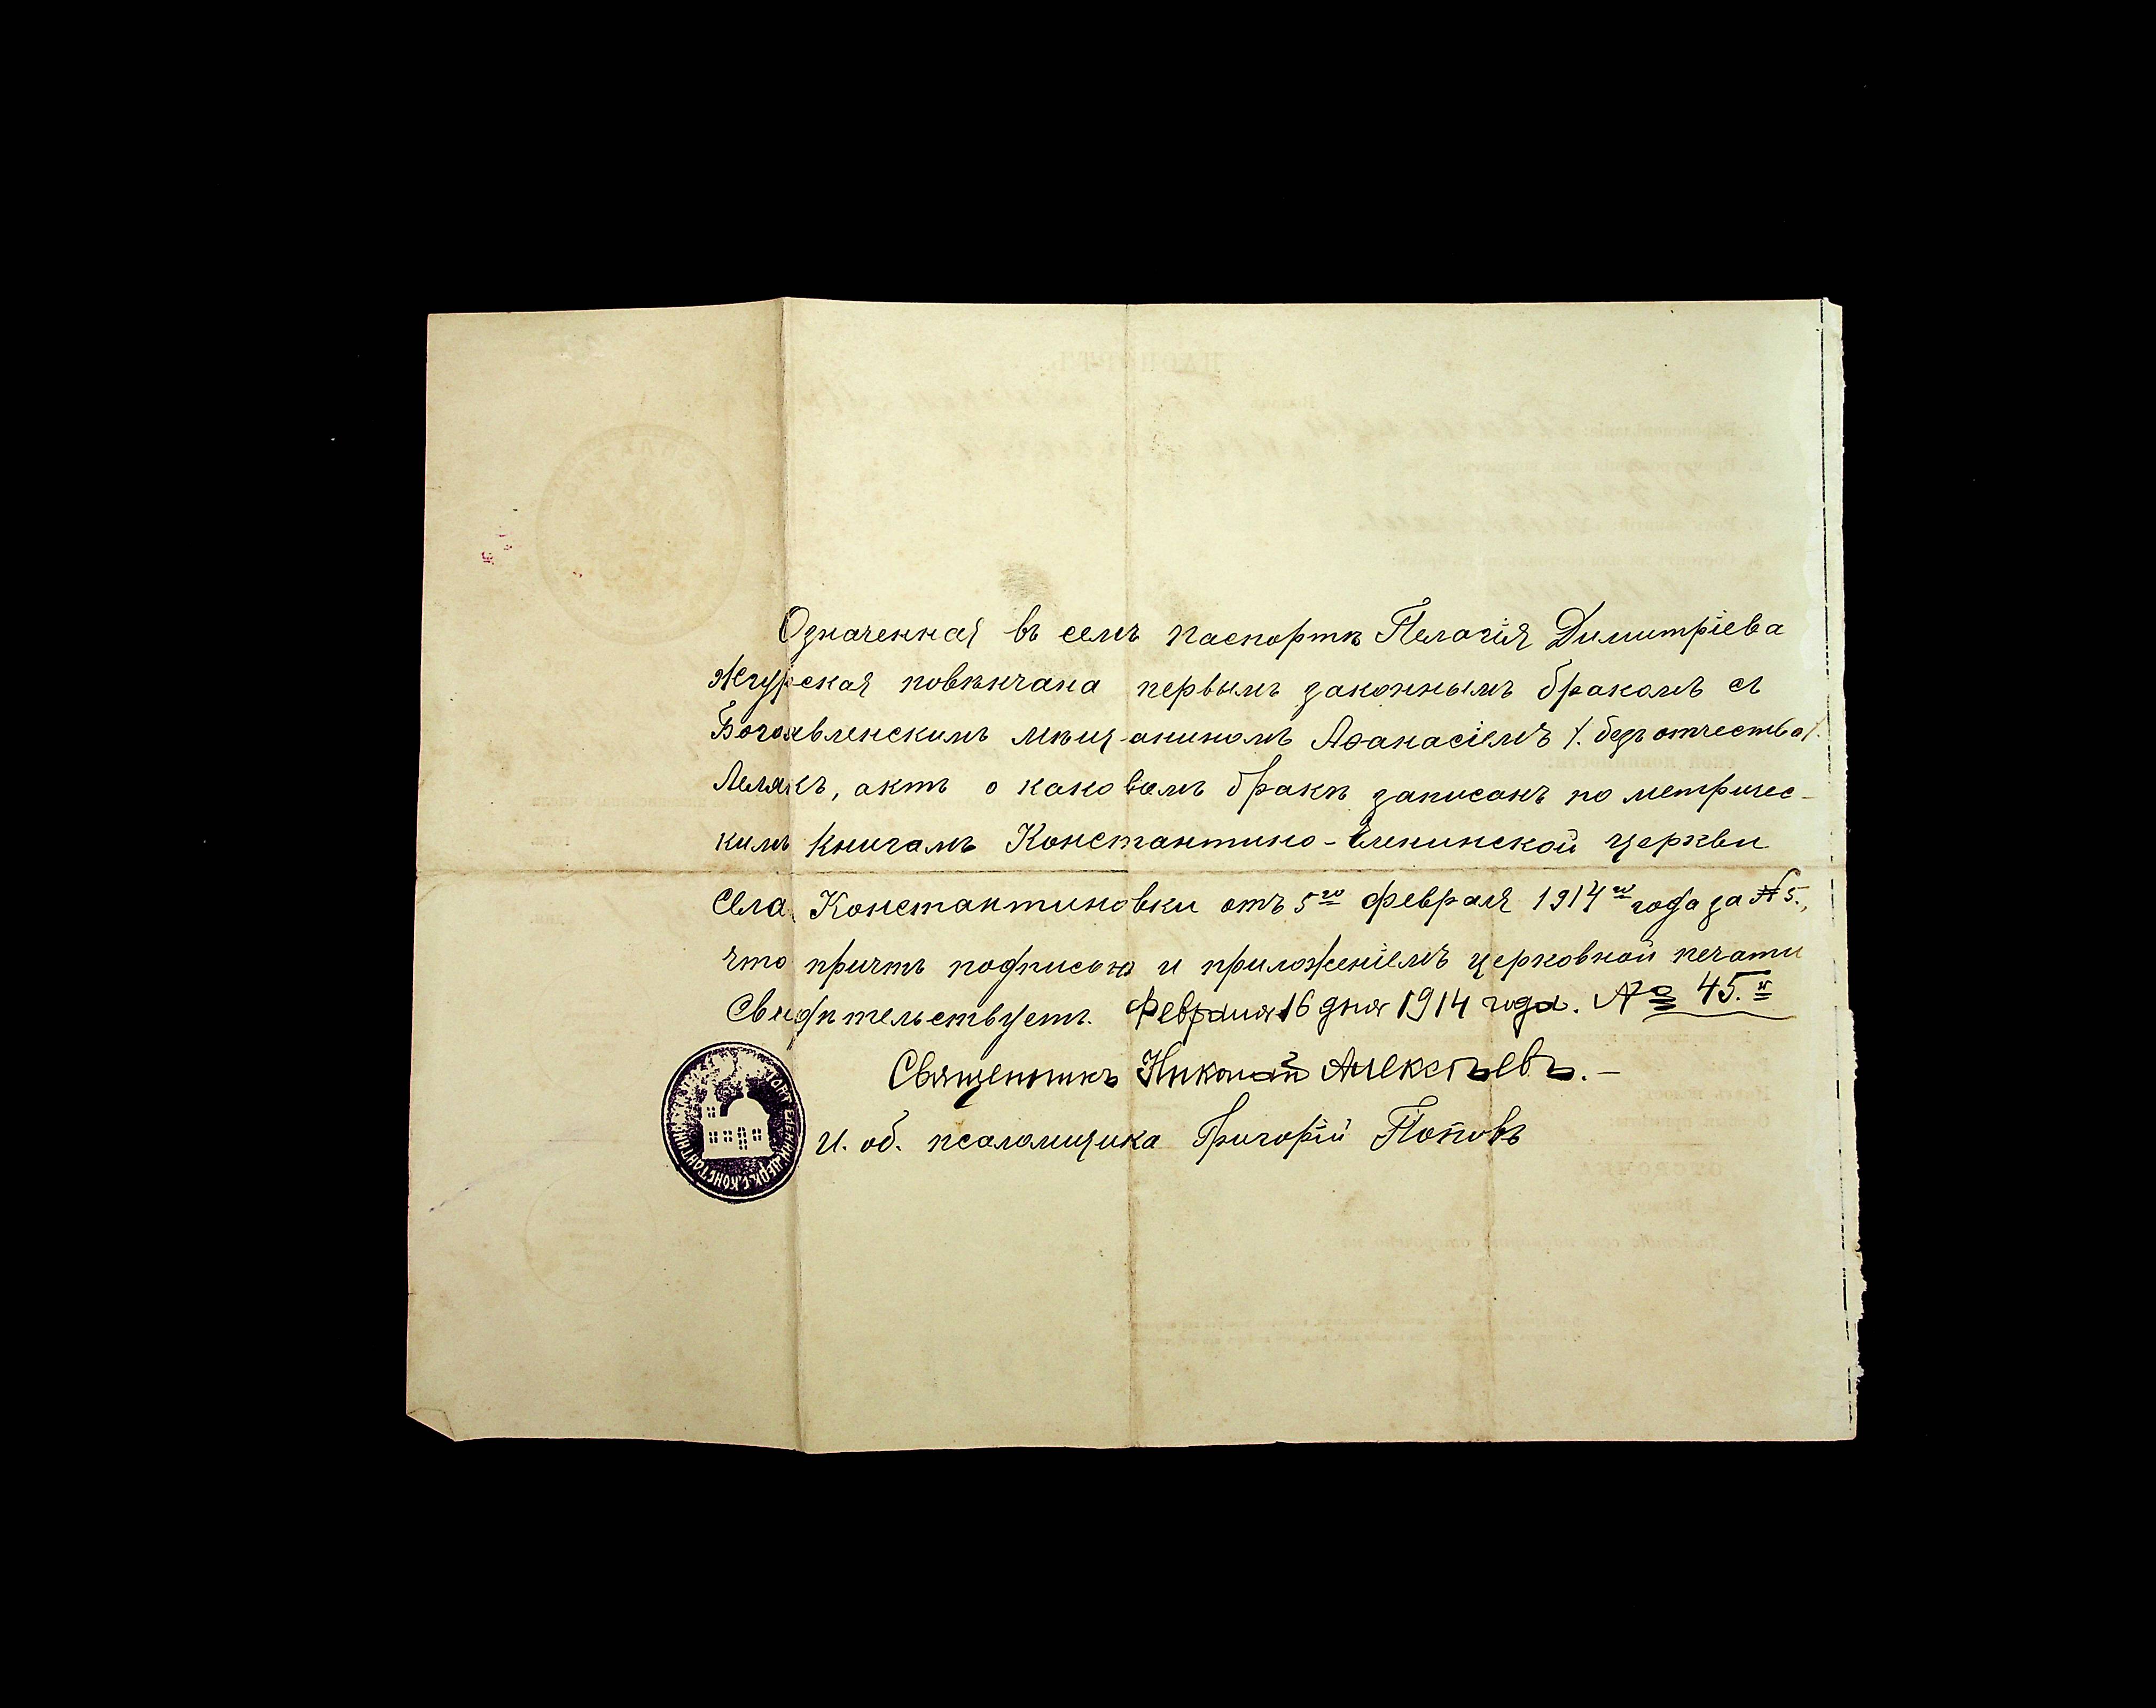 Означенная въ семъ паспортѣ Пелагія Димитріева
Жгурская повѣнчана первымъ законнымъ бракомъ съ
Богоявленскимъ мѣщаниномъ Аѳанасіемъ /. безъ отчества /.
Леляхъ, актъ о каковомъ бракѣ записанъ по метричес-
кимъ книгамъ Константино-Еленинской церкви
Села Константиновки отъ 5го февраля 1914го года за № 5.,
что причтъ подписью и приложеніемъ церковной печати
Свидѣтельствуетъ. Февраля 16 дня 1914 года. № 45.й
Священникъ Николай Алексѣевъ. –
И. об. псаломщика Григорій Поповъ